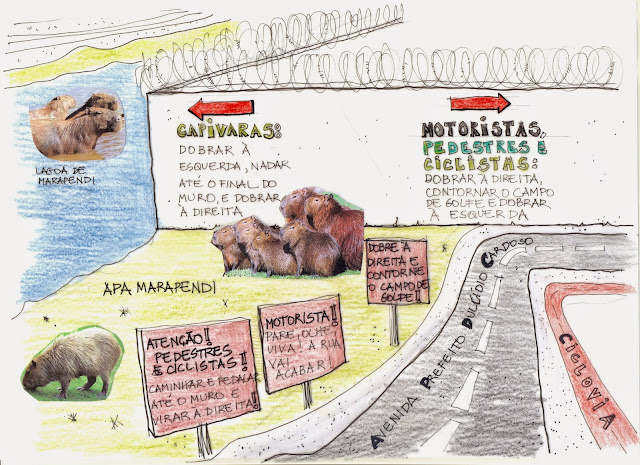 CAPIVARAS:
DOBRAR À
ESQUERDA, NADAR
ATÉ O FINAL DO
MURO, E DOBRAR
À DIREITA
MOTORISTAS,
PEDESTRES E
CICLISTAS:
DOBRAR À DIREITA,
CONTORNAR O CAMPO
DE GOLFE E DOBRAR
À ESQUERDA
LAGOA DE
MARAPENDI
APA MARAPENDI
DOBRE À
DIREITA E
CONTORNE
O CAMPO DE
GOLFE!!
MOTORISTA!!
PARE, OLHE,
VIVA! A RUA
VAI
ACABAR!
ATENÇÃO!!
PEDESTRES
E CICLISTAS!!
CAMINHAR E PEDALAR
ATÉ O MURO E
VIRAR A DIREITA!!
AVENIDA PREFEITO DULCÍDIO CARDOSO
CICLOVIA